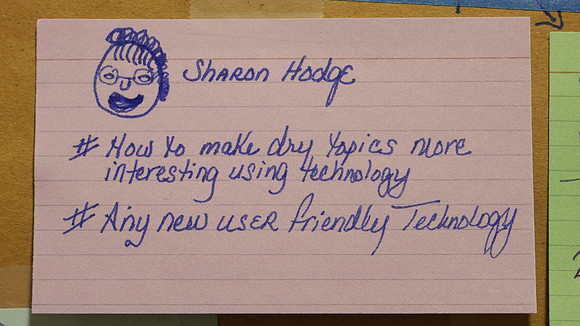 Sharon Hodge
# How to make dry topics more
interesting using technology
# Any new user friendly Technology